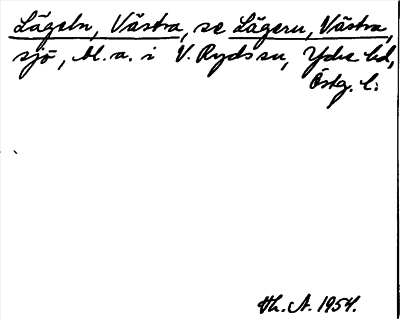 Lägeln, Västra, se Lägern, Västra,
sjö, bl. a. i V. Ryds sn, Ydre hd,
Östg. l.
Hh. A. 1954.